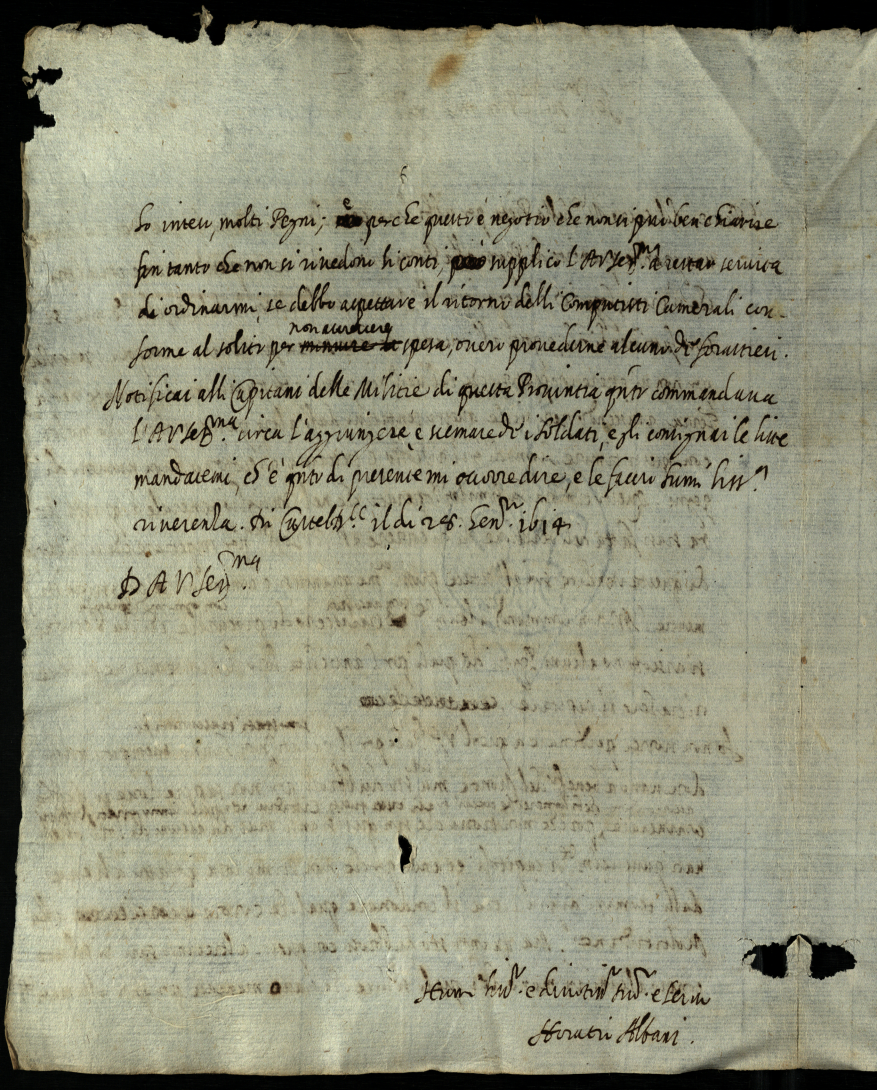 ho inteso, molti Pegni; e perche questo è negotio che non si può ben chiarire
fin tanto che non si rivedono li conti, supplico l'A V Ser.ma à restar servita
di ordinarmi, se debbo aspettare il ritorno delli Computisti Camerali con-
forme al solito per non accrescere spesa, overo provederne alcuno de forastieri.
Notificai alli Capitani delle Militie di questa Provintia q.nto commandava
l'A V Ser.ma circa l'aggiungere, e scemare de i soldati, e gli consignai le liste
mandatemi, ch'è q.nto di presente mi occorre dire, e le faccio hum.
riverenza. Di Casteld.te il di 28. Genn.ro 1614
D A V Ser.ma
Hum e divotis.mo e Ser.re
Horatio Albani.